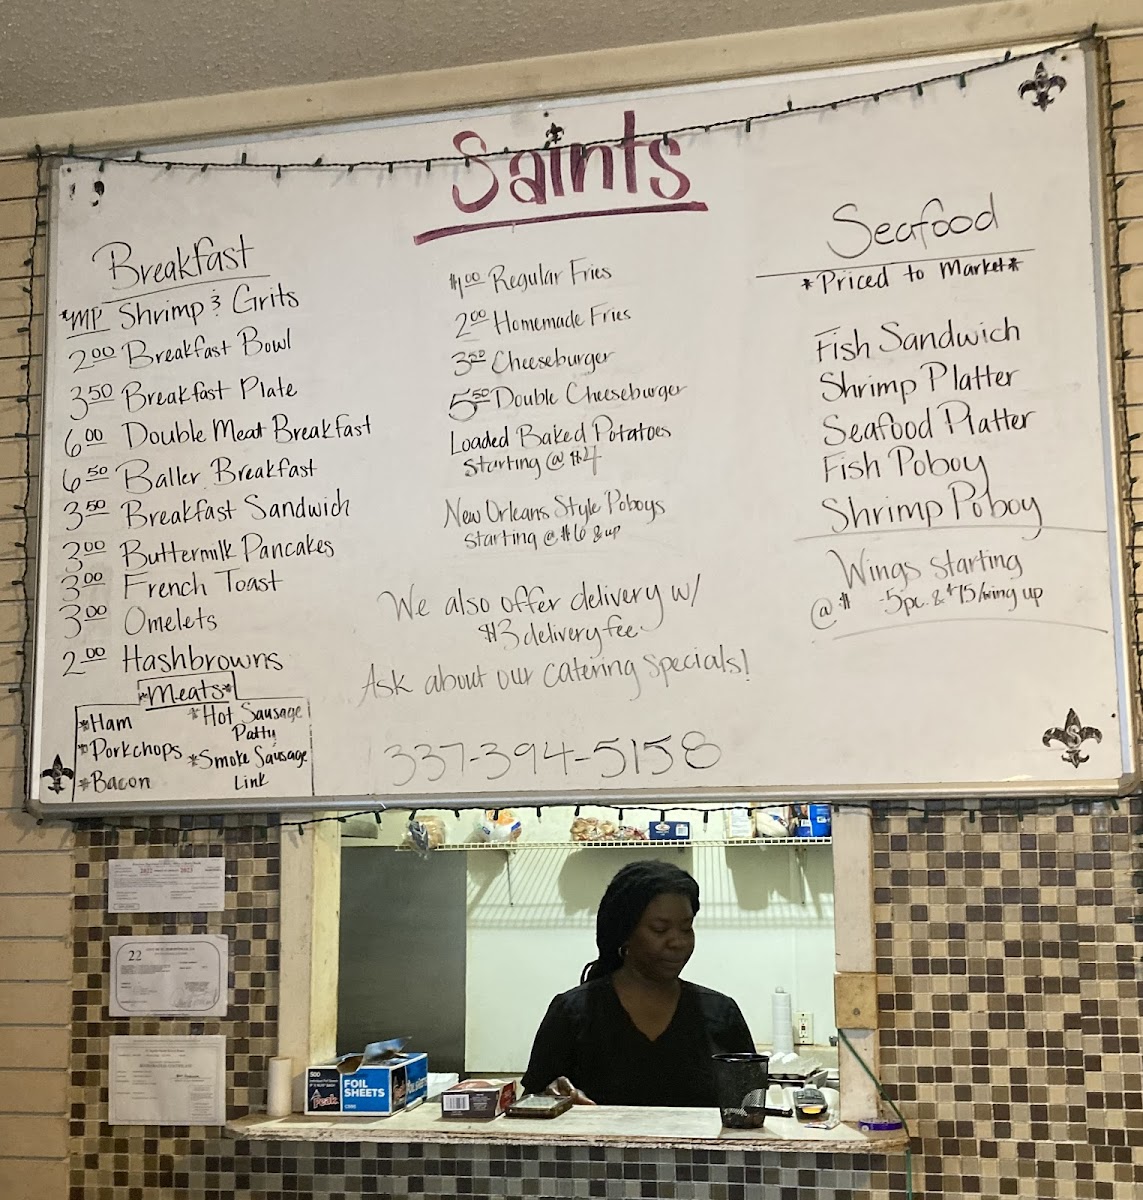 Saints
Breakfast
*MP Shrimp & Grits
2.00 Breakfast Bowl
3.50 Breakfast Plate
6.00 Double Meat Breakfast
6.50 Baller Breakfast
3.50 Breakfast Sandwich
3.00 Buttermilk Pancakes
3.00 French Toast
3.00 Omelets
2.00 Hashbrowns
*Meats*
*Ham
*Porkchops
*Bacon
*Hot Sausage
Patty
*Smoke Sausage
Link
$1.00 Regular Fries
2.00 Homemade Fries
3.50 Cheeseburger
5.50 Double Cheeseburger
Loaded Baked Potatoes
Starting @ $4
New Orleans Style Poboys
Starting @ $6 & up
We also offer delivery w/
$3 delivery fee
Ask about our catering specials!
337-394-5158
Seafood
*Priced to Market*
Fish Sandwich
Shrimp Platter
Seafood Platter
Fish Poboy
Shrimp Poboy
Wings starting
@ $ -5pc. & $.75/wing up
2022 2023
22
500
FOIL
SHEETS
Peak